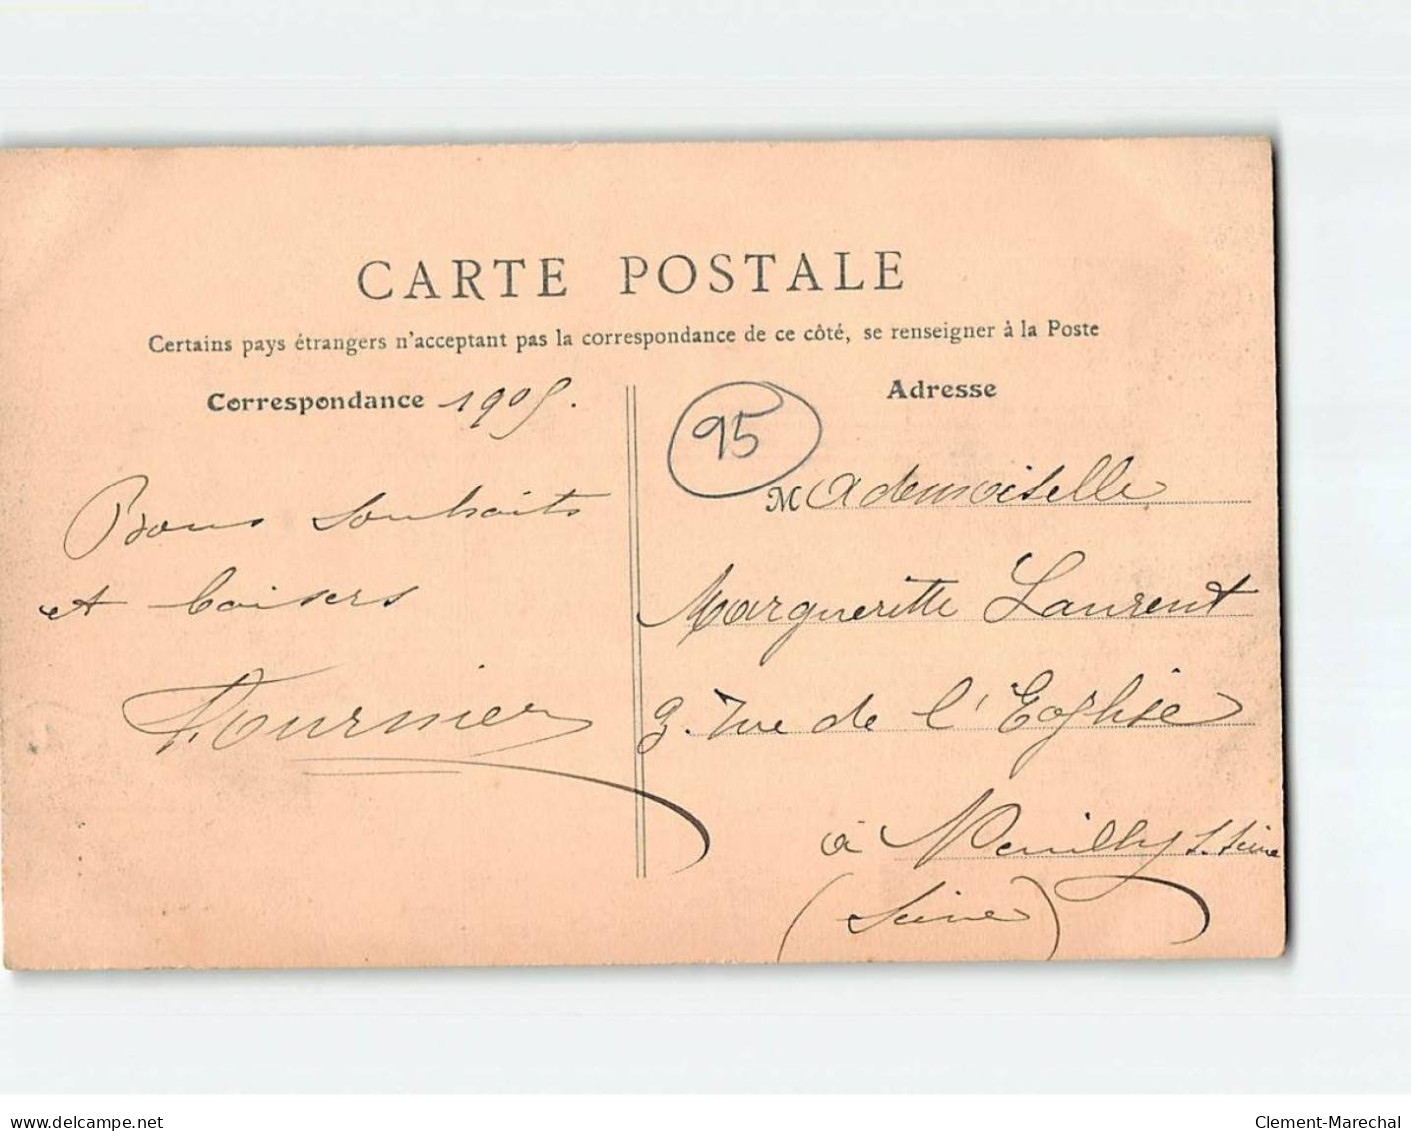 CARTE POSTALE
Certains pays étrangers n'acceptent pas la correspondance de ce côté, se renseigner à la Poste
Correspondance 1905.
Bons souhaits
et baisers
Fournier
95
Adresse
Mademoiselle
Marguerite Laurent
3. rue de l'Eglise
à Neuilly s. Seine
(Seine)
www.delcampe.net
Clement-Marechal